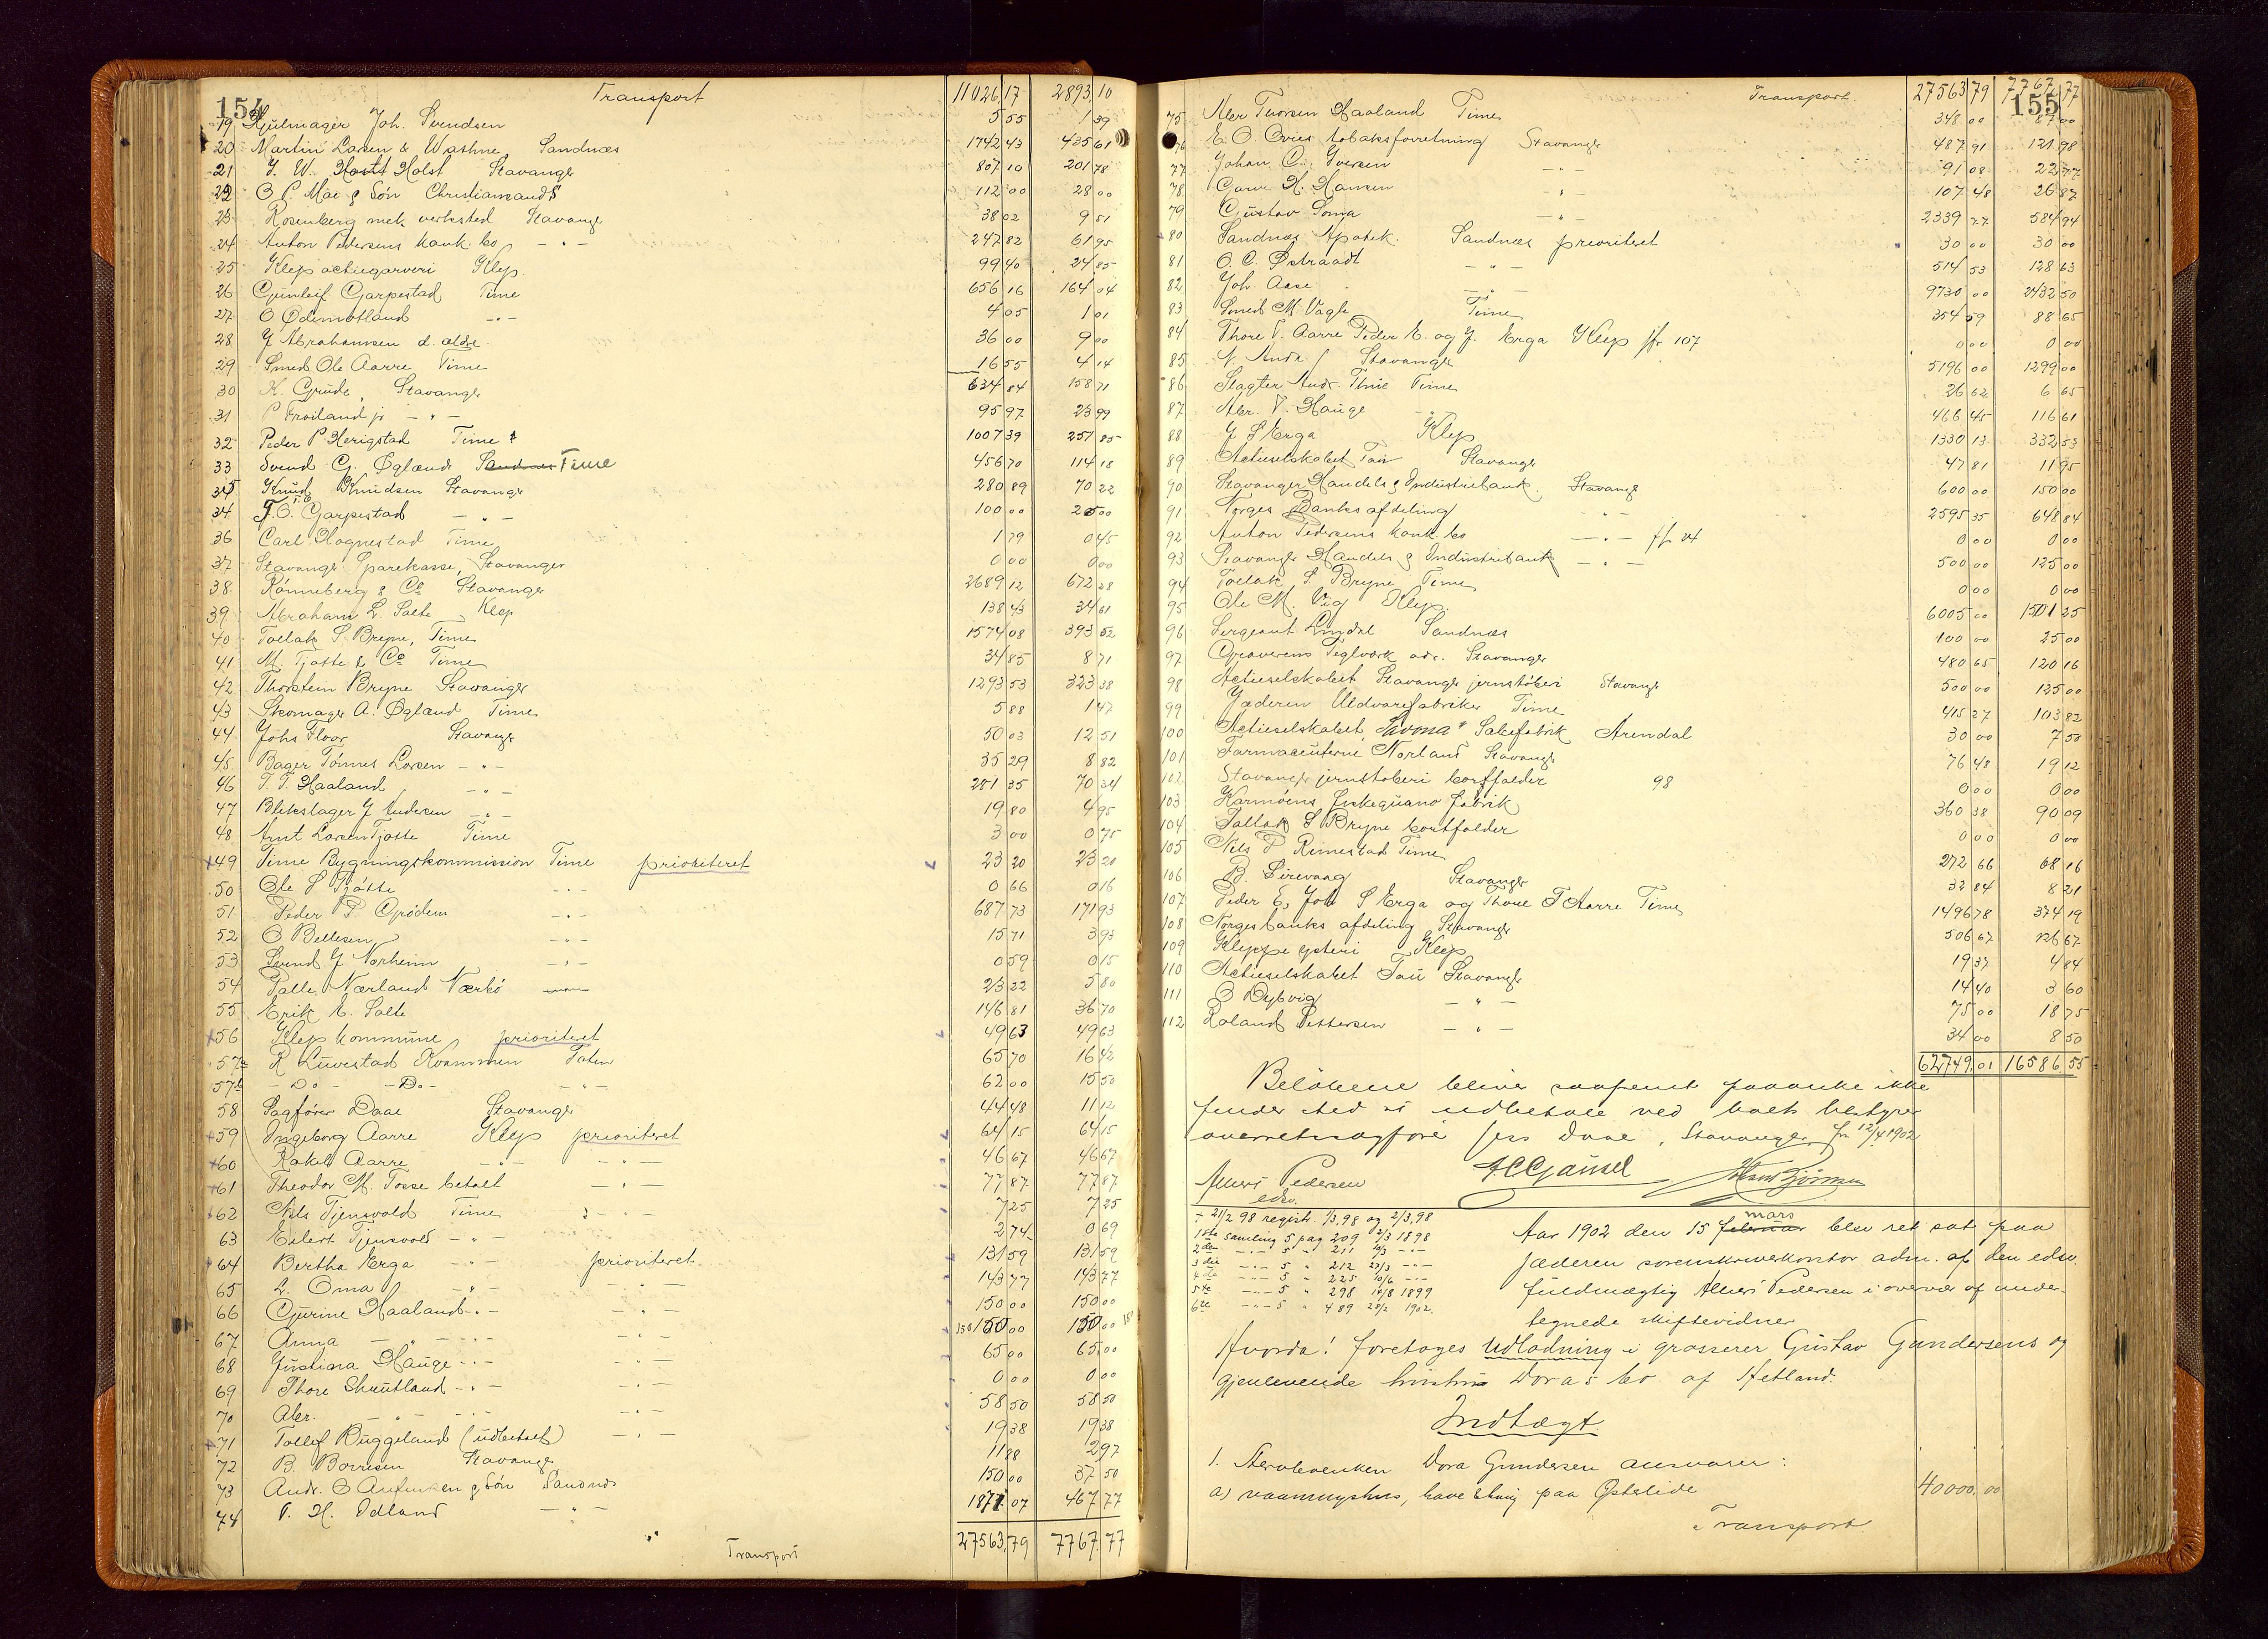 154
Transport 11026 17 2893 10
19 Hjulmager Joh. Svendsen 5 55 1 39
20 Martin Larsen & Washne Sandnæs 1742 43 435 61
21 J. W. Holst Stavanger 807 10 201 78
22 O P. Moe & Søn Christiansands 112 00 28 00
23 Rosenberg mek. verksted Stavanger 38 02 9 51
24 Anton Pedersens konk. bo - " - 247 82 61 95
25 Klep actiegarveri Klep 99 40 24 85
26 Gunleif Garpestad Time 656 16 164 04
27 O Ødemotland - " - 4 05 1 01
28 J Abrahamsen d. ældre 36 00 9 00
29 Smed Ole Aarre Time 16 55 4 14
30 K. Grude, Stavanger 634 84 158 71
31 P Frøiland jr - " - 95 97 23 99
32 Peder P Herigstad Time 1007 39 251 85
33 Svend G. Øglænd Sandnæs Time 456 70 114 18
35 Knud Knudsen Stavanger 280 89 70 22
34 T. O. Garpestad - " - 100 00 25 00
36 Carl Hognestad Time 1 79 0 45
37 Stavanger Sparekasse, Stavanger 0 00 0 00
38 Rønneberg & Co Stavanger 2689 12 672 28
39 Abraham L. Salte Klep 138 43 34 61
40 Tollak S. Bryne, Time 1574 08 393 52
41 M. Tjøtte & Co Time 34 85 8 71
42 Thorstein Bryne Stavanger 1293 53 323 38
43 Skomager A. Øglænd Time 5 88 1 47
44 Johs Floor Stavanger 50 03 12 51
45 Bager Tønnes Larsen - " - 35 29 8 82
46 T. T. Haaland - " - 281 35 70 34
47 Blikslager J Andersen - " - 19 80 4 95
48 Amt Larsen Tjøtte Time 3 00 0 75
49 Time Bygningskommission Time prioriteret 23 20 23 20
50 Ole S Tjøtte - " - 0 66 0 16
51 Peder P. Grødem - " - 687 73 171 93
52 O Bellesen - " - 15 71 3 93
53 Svend J Norheim - " - 0 59 0 15
54 Palle Nærland Nærbø 23 22 5 80
55 Erik E. Salte 146 81 36 70
56 Klep kommune prioriteret 49 63 49 63
57a R Luvestad Kvammen Faten 65 70 16 42
57b - Do - - Do - - " - 62 00 15 50
58 Sagfører Daae Stavanger 44 48 11 12
59 Ingeborg Aarre Klep prioriteret 64 15 64 15
60 Rakel Aarre - " - - " - 46 67 46 67
61 Theodor M. Tosse betalt - " - 77 87 77 87
62 Nils Tjensvold Time - " - 7 25 7 25
63 Eilert Tjensvold - " - 2 74 0 69
64 Bertha Erga - " - prioriteret 13 59 13 59
65 L. Oma - " - - " - 143 77 143 77
66 Gurine Haaland - " - - " - 150 00 150 00
67 Anna - " - - " - - " - 150 150 00 150 00
68 Justina Hauge - " - - " - 65 00 65 00
69 Thore Skrutland - " - - " - 0 00 0 00
70 Abr. - " - - " - - " - 58 50 58 50
71 Tollef Buggeland (udbetalt) - " - 19 38 19 38
72 B. Borresen Stavanger 11 88 2 97
73 Andr. O Anfinsen & Søn Sandnæs 150 00 37 50
74 T. H. Idland - " - 1871 07 467 77
Transport 27563,79 7767.77
155
Transport 27563 79 7767 77
75 Abr Tuorsen Haaland Time 348 00 87 00
76 E. O Øvries tobaksforretning Stavanger 487 91 121 98
77 Johan C. Iversen - " - 91 08 22 77
78 Garv. H. Hansen - " - 107 48 26 87
79 Gustav Soma - " - 2339 77 584 94
80 Sandnæs Apotek. Sandnæs prioriteret 30 00 30 00
81 O. C. Østraadt - " - 514 53 128 63
82 Joh. Aase - " - 9730 00 2432 50
83 Smed M. Vagle Time 354 59 88 65
84 Thore T. Aarre Peder E. og J. Erga Klep jfr 107 0 00 0 00
85 N. Anda Stavanger 5196 00 1299 00
86 Slagter Andr. Time Time 26 62 6 65
87 Abr. T. Hauge - " - 466 45 116 61
88 J S Erga Klep 1330 13 332 53
89 Actieselskabet Tau Stavanger 47 81 11 95
90 Stavanger Handels & Industribank Stavanger 600 00 150 00
91 Norges Banks afdeling - " - 2595 35 648 84
92 Anton Pedersens konk. bo - " - jfr 24 0 00 0 00
93 Stavanger Handels & Industribank - " - 500 00 125 00
94 Tollak S. Bryne Time 0 00 0 00
95 Ole M. Vig Klep. 6005 00 1501 25
96 Sergeant Lindal Sandnæs 100 00 25 00
97 Graverens Teglværk adr. Stavanger 480 65 120 16
98 Actieselskabet Stavanger jernstøberi Stavanger 500 00 125 00
99 Jæderen Uldvarefabriker Time 415 27 103 82
100 Actieselskabet "Savona" Sæbefabrik Arendal 30 00 7 50
101 Farmaceuterne Norland Stavanger 76 48 19 12
102 Stavanger jernstøberi bortfalder 98 0 00 0 00
103 Karmøens fiskeguano fabrik 360 38 90 09
104 Tallak S Bryne bortfalder 0 00 0 00
105 Nils P Rimestad Time 272 66 68 16
106 B. Sirevaag Stavanger 32 84 8 21
107 Peder E, Joh S Erga og Thore T Aarre Time 1496 78 374 19
108 Norges banks afdeling Stavanger 506 67 126 67
109 Kleppe ysteri Klep 19 37 4 84
110 Actieselskabet Tau Stavanger 14 40 3 60
111 O Dybvig - " - 75 00 18 75
112 Roland Pettersen - " - 34 00 8 50
62749 01 16586 55
Beløbene bliver saafremt paaanke ikke
finder sted at udbetale ved boets bestyrer
overretssagfører Jess Daae, Stavanger, fr 12/4 1902
Alhert Pedersen HCGausel
edsv.
- 21/2 98 registr. 1/3 98 og 2/3 98
1ste samling 5 pag 209 2/3 1898
2den - " - 5 " 211 4/3 - " -
3die - " - 5 " 212 23/3 - " -
4de - " - 5 " 225 10/6 - " -
5te - " - 5 " 298 18/8 1899
6te - " - 5 " 489 20/2 1902.
Aar 1902 den 15 februar mars blev ret sat paa
Jæderen sorenskriverkontor adm. af den edsv.
fuldmægtig Alhert Pedersen i overvær af under-
tegnede skiftevidner
Hvorda! foretoges Udlodning i grosserer Gustav Gundersens og
gjenlevende hustru Doras bo af Hetland.
Indtægt.
1. Stervboenken Dora Gundersen ansvarer:
a) vaaningshus, have & havig paa Østelide 40000,00
Transport